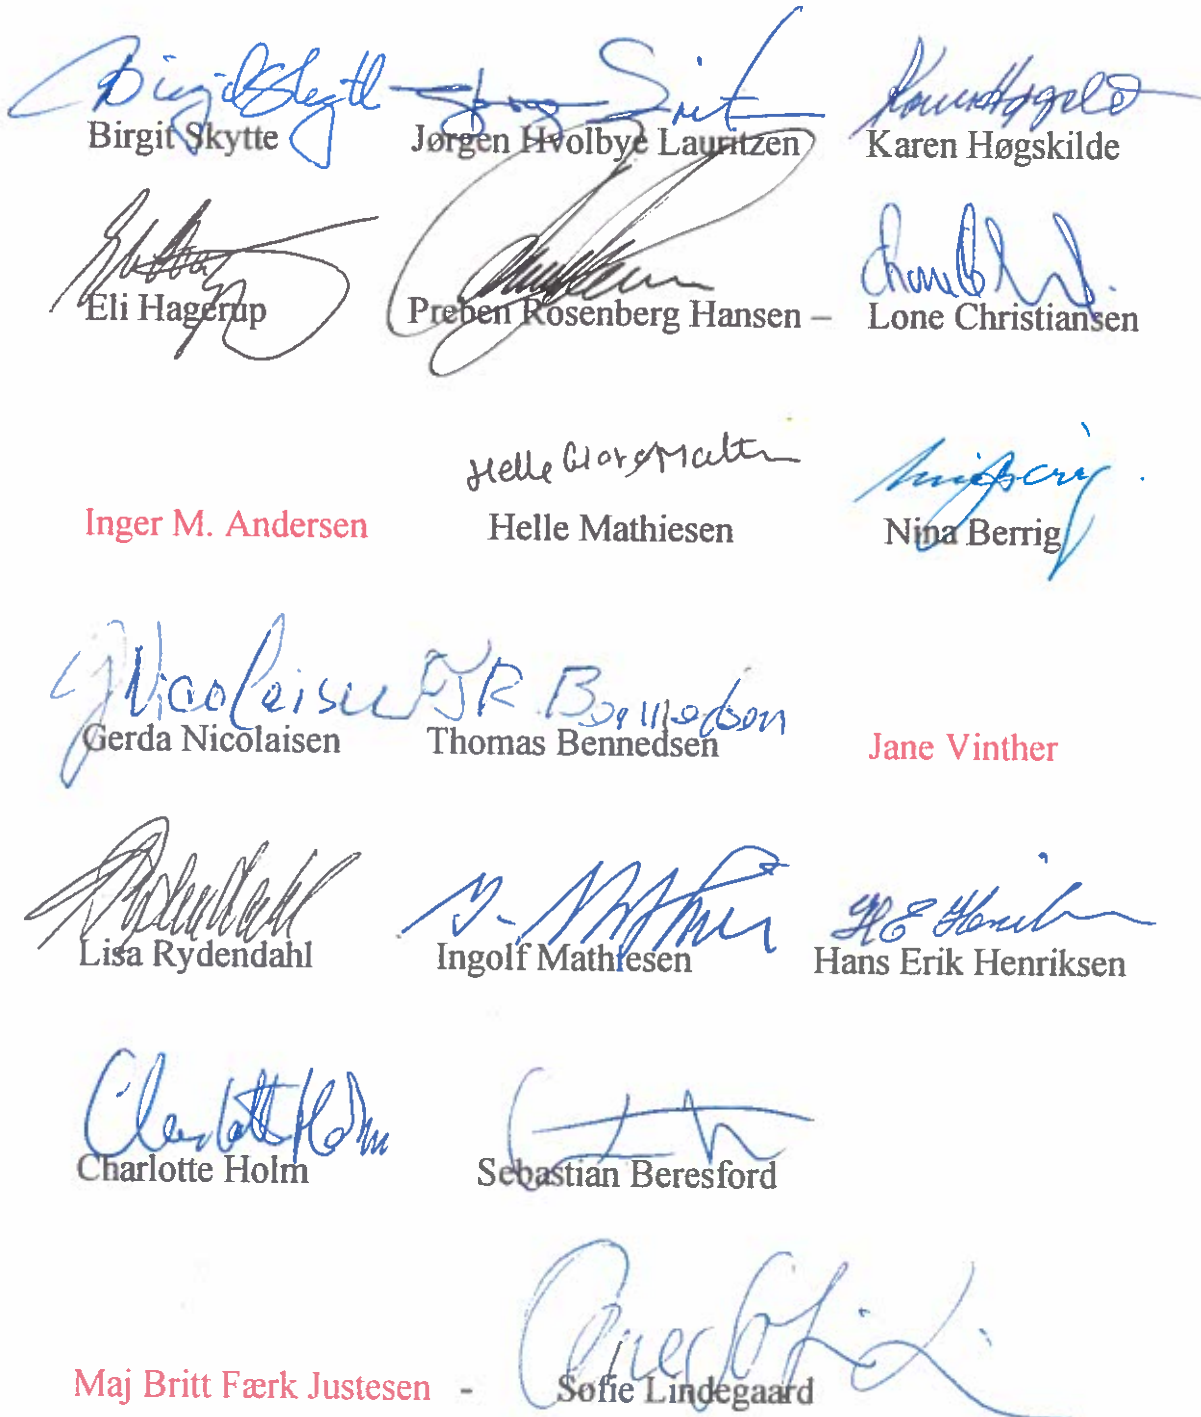 Birgit Skytte Jørgen Hvolbye Lauritzen Karen Høgskilde
Eli Hagerup Preben Rosenberg Hansen – Lone Christiansen
Helle
Inger M. Andersen Helle Mathiesen Nina Berrig
Nicolaisen TJR Bennedsen
Gerda Nicolaisen Thomas Bennedsen Jane Vinther
Lisa Rydendahl Ingolf Mathiesen Hans Erik Henriksen
Charlotte Holm
Charlotte Holm Sebastian Beresford
Maj Britt Færk Justesen - Sofie Lindegaard